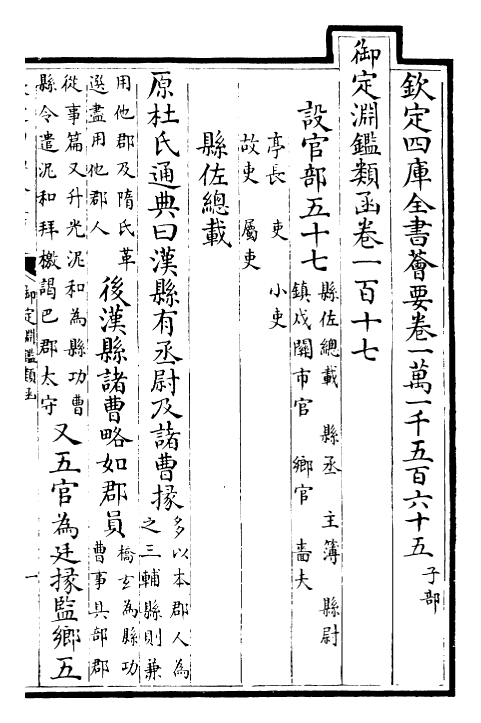 欽定四庫全書薈要卷一萬一千五百六十五 子部
御定淵鑑類函卷一百十七
設官部五十七 縣佐總載 縣丞 主簿 縣尉
鎮戍關市官 鄉官 嗇夫
亭長 吏 小吏
故吏 屬吏
縣佐總載
原杜氏通典曰漢縣有丞尉及諸曹掾多以本郡人為
之三輔縣則兼
用他郡及隋氏革
選盡用他郡人 後漢縣諸曹略如郡員橋玄為縣功
曹事具部郡
從事篇又升光泥和為縣功曹
縣令遣泥和拜檄謁巴郡太守 又五官為廷掾監鄉五
御定淵鑑類函
一